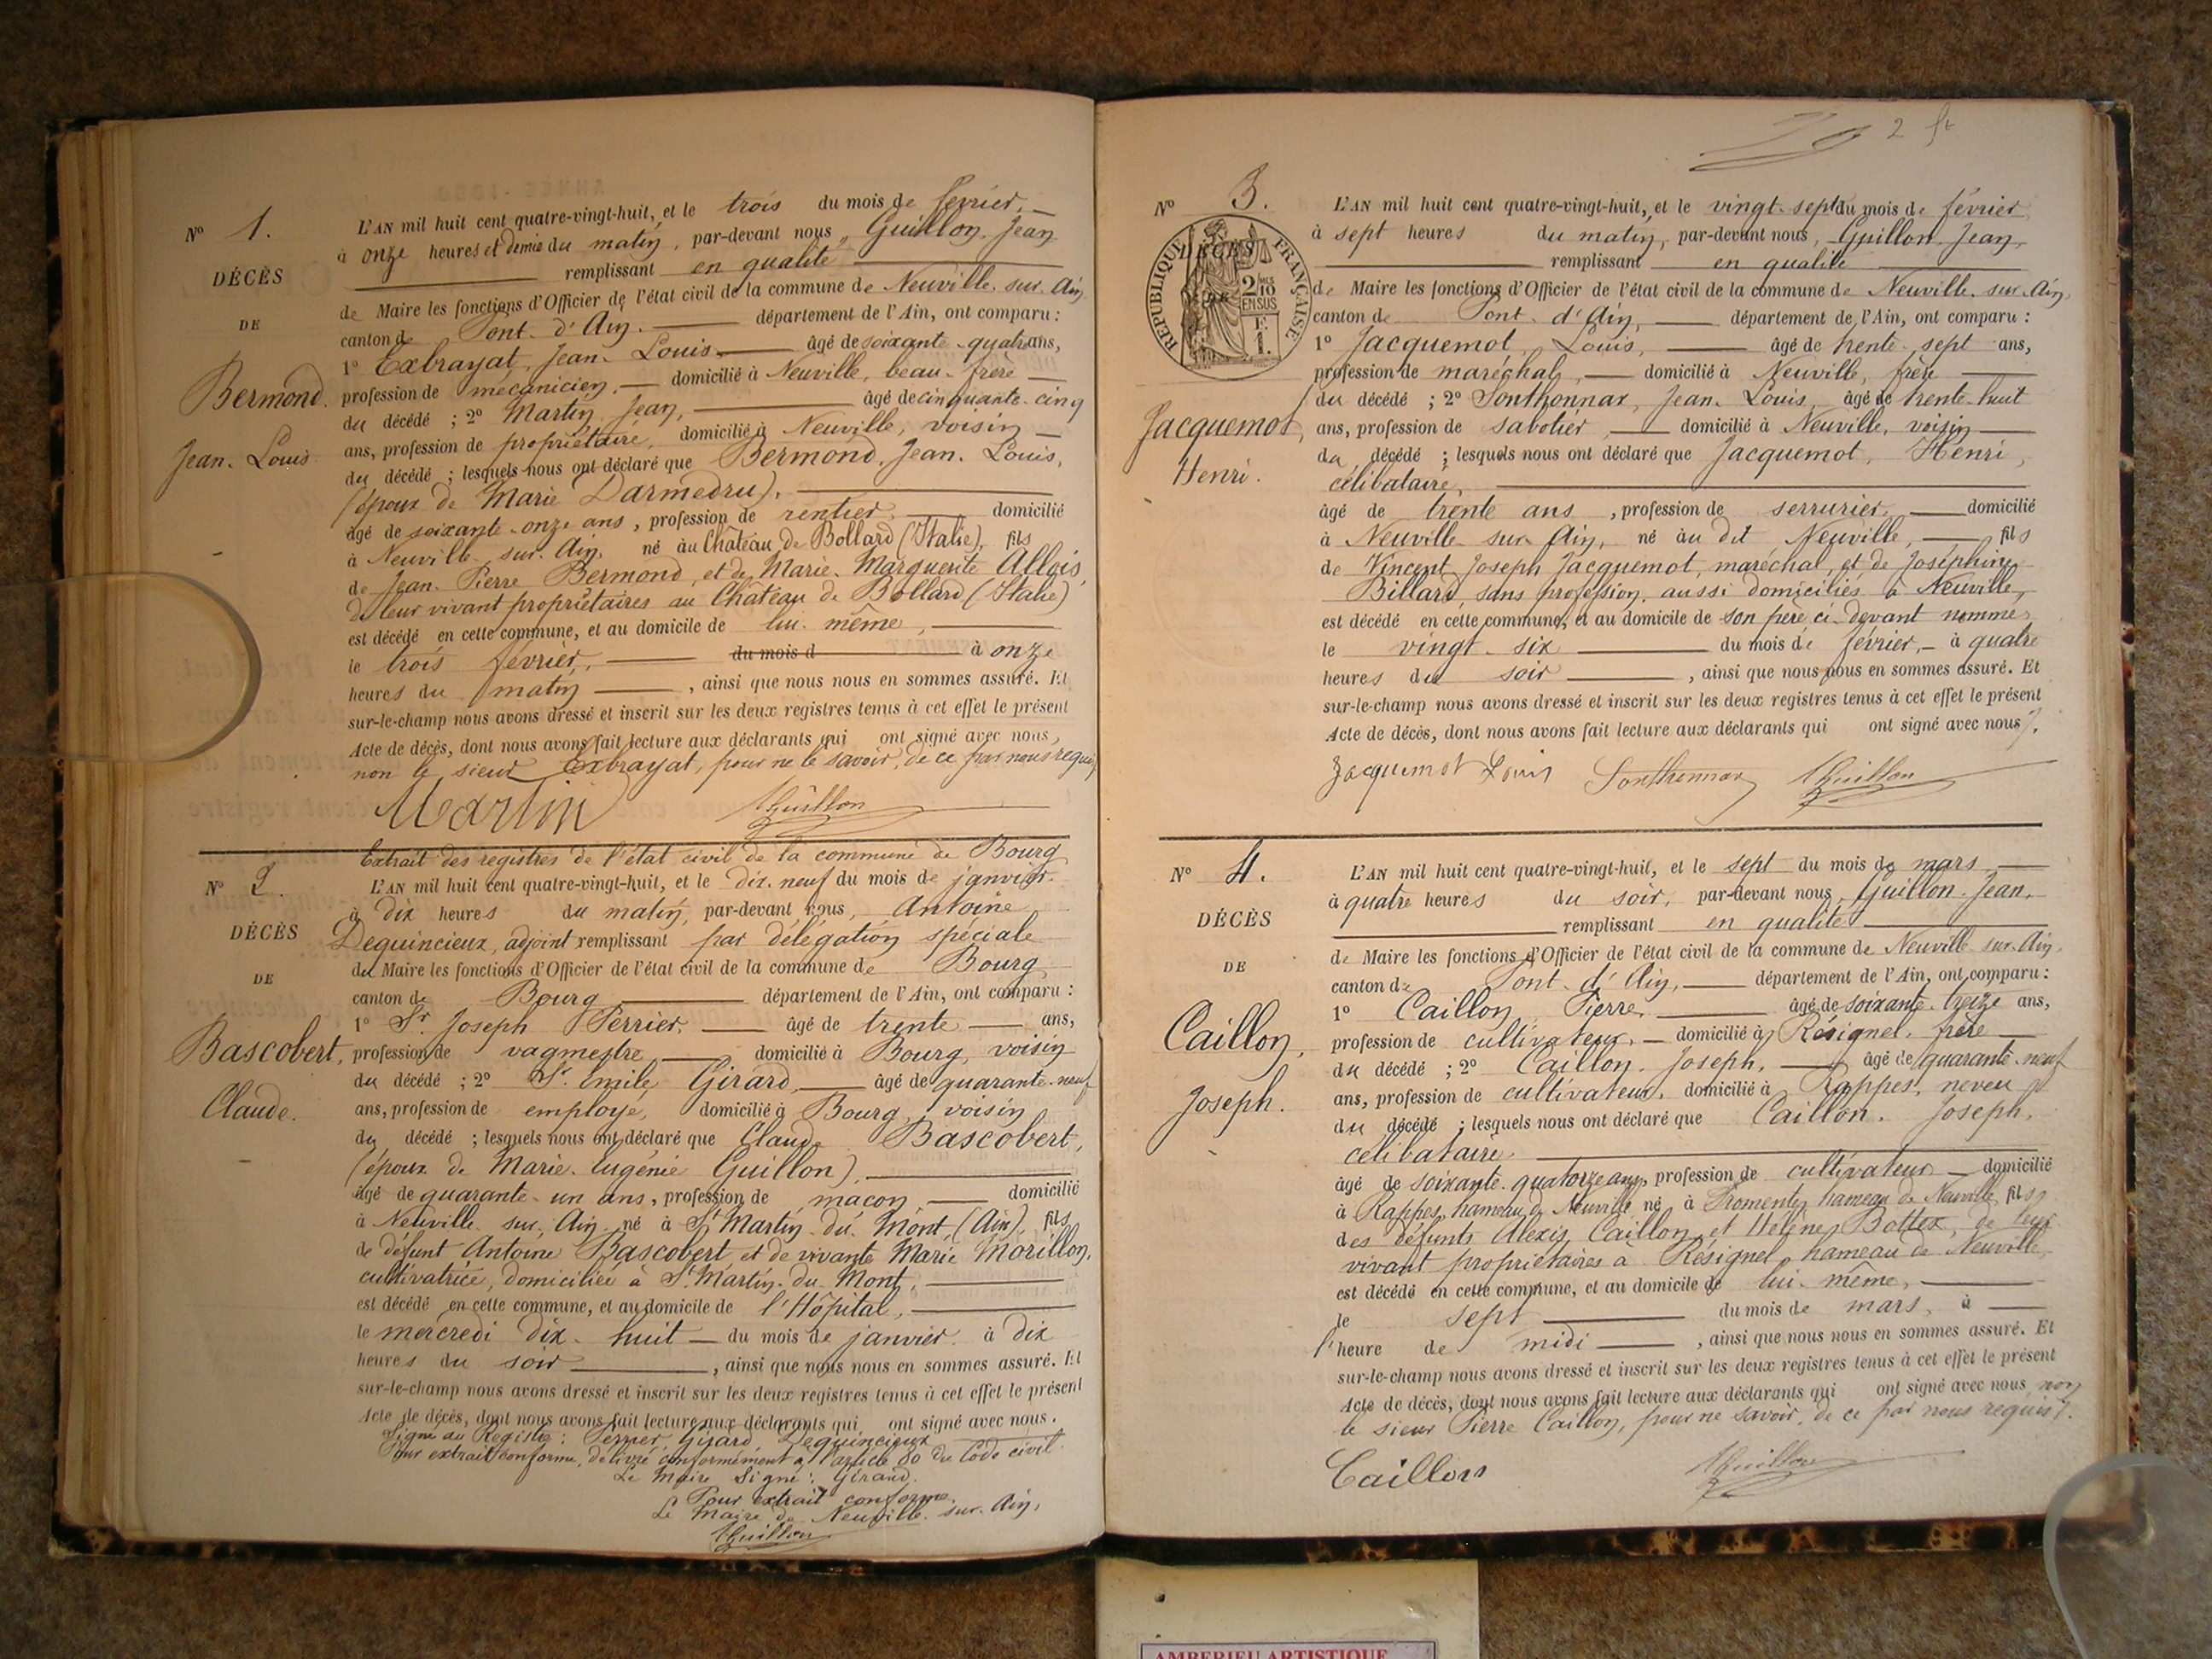 N° 1.
DÉCÈS
DE
Bermond
Jean-Louis
L'AN mil huit cent quatre-vingt-huit, et le trois du mois de février,
à onze heures et demie du matin, par-devant nous, Guillon Jean
remplissant en qualité
de Maire les fonctions d'Officier de l'état civil de la commune de Neuville-sur-Ain
canton de Pont-d'Ain département de l'Ain, ont comparu :
1° Extrayat, Jean-Louis âgé de soixante-quatre ans,
profession de mécanicien, domicilié à Neuville, beau-frère
du décédé ; 2° Martin Jean, âgé de cinquante-cinq
ans, profession de propriétaire, domicilié à Neuville, voisin
du décédé ; lesquels nous ont déclaré que Bermond, Jean-Louis,
(époux de Marie Darmedru),
âgé de soixante-onze ans, profession de rentier domicilié
à Neuville-sur-Ain, né au Château de Bollard (Italie), fils
de Jean-Pierre Bermond, et de Marie-Marguerite Allois,
de leur vivant propriétaires au Château de Bollard (Italie)
est décédé en cette commune, et au domicile de lui-même,
le trois février, du mois d à onze
heures du matin, ainsi que nous nous en sommes assuré. Et
sur-le-champ nous avons dressé et inscrit sur les deux registres tenus à cet effet le présent
Acte de décès, dont nous avons fait lecture aux déclarants qui ont signé avec nous,
non le sieur Extrayat, pour ne le savoir, de ce par nous requis
Martin JGuillon
Extrait des registres de l'état civil de la commune de Bourg
N° 2.
DÉCÈS
DE
Bascobert,
Claude.
L'AN mil huit cent quatre-vingt-huit, et le dix-neuf du mois de janvier
à dix heures du matin, par-devant nous, Antoine
Dequincieux, adjoint remplissant par délégation spéciale
du Maire les fonctions d'Officier de l'état civil de la commune de Bourg
canton de Bourg département de l'Ain, ont comparu :
1° Sr. Joseph Perrier, âgé de trente ans,
profession de vagmestre domicilié à Bourg, voisin
du décédé ; 2° Sr. Emile Girard, âgé de quarante-neuf
ans, profession de employé, domicilié à Bourg, voisin
du décédé ; lesquels nous ont déclaré que Claude Bascobert,
(époux de Marie-Eugénie Guillon),
âgé de quarante-un ans, profession de maçon domicilié
à Neuville-sur-Ain né à St Martin-du-Mont, (Ain), fils
de défunt Antoine Bascobert et de vivante Marie Morillon,
cultivatrice, domiciliée à St Martin-du-Mont,
est décédé en cette commune, et au domicile de l'Hôpital,
le mercredi dix-huit du mois de janvier à dix
heures du soir, ainsi que nous nous en sommes assuré. Et
sur-le-champ nous avons dressé et inscrit sur les deux registres tenus à cet effet le présent
Acte de décès, dont nous avons fait lecture aux déclarants qui ont signé avec nous.
Signé au Registre : Perrier, Girard Dequincieux
Pour extrait conforme, délivré conformément à l'article 80 du Code civil
Le Maire Signé : Girard.
Pour extrait conforme
Le Maire de Neuville-sur-Ain,
JGuillon
2
N° 3.
RÉPUBLIQUE FRANÇAISE
DÉCÈS
2/10
EN SUS
Jacquemot,
Henri.
L'AN mil huit cent quatre-vingt-huit, et le vingt-sept du mois de février
à sept heures du matin, par-devant nous, Guillon Jean,
remplissant en qualité
de Maire les fonctions d'Officier de l'état civil de la commune de Neuville-sur-Ain,
canton de Pont-d'Ain, département de l'Ain, ont comparu :
1° Jacquemot, Louis, âgé de trente-sept ans,
profession de maréchal, domicilié à Neuville, frère
du décédé ; 2° Sonthonnax, Jean-Louis âgé de trente-huit
ans, profession de sabotier, domicilié à Neuville, voisin
du décédé ; lesquels nous ont déclaré que Jacquemot, Henri,
célibataire,
âgé de trente ans, profession de serrurier, domicilié
à Neuville-sur-Ain, né au dit Neuville, fils
de Vincent Joseph Jacquemot, maréchal, et de Joséphine
Billard, sans profession, aussi domiciliés à Neuville,
est décédé en cette commune, et au domicile de son père ci-devant nommé,
le vingt-six du mois de février, à quatre
heures du soir, ainsi que nous nous en sommes assuré. Et
sur-le-champ nous avons dressé et inscrit sur les deux registres tenus à cet effet le présent
Acte de décès, dont nous avons fait lecture aux déclarants qui ont signé avec nous.
Jacquemot Louis Sonthonnax JGuillon
N° 4.
DÉCÈS
DE
Caillon,
Joseph.
L'AN mil huit cent quatre-vingt-huit, et le sept du mois de mars
à quatre heures du soir, par-devant nous, Guillon Jean,
remplissant en qualité
de Maire les fonctions d'Officier de l'état civil de la commune de Neuville-sur-Ain,
canton de Pont-d'Ain, département de l'Ain, ont comparu :
1° Caillon, Pierre, âgé de soixante-treize ans,
profession de cultivateur, domicilié à Résignel, frère
du décédé ; 2° Caillon, Joseph, âgé de quarante-neuf
ans, profession de cultivateur, domicilié à Rappes, neveu
du décédé ; lesquels nous ont déclaré que Caillon, Joseph,
célibataire
âgé de soixante-quatorze ans, profession de cultivateur domicilié
à Rappes, hameau de Neuville né à Fromente, hameau de Neuville, fils
des défunts Alexis Caillon et Hélène Bottex, de leur
vivant propriétaires à Résignel, hameau de Neuville,
est décédé en cette commune, et au domicile de lui-même,
le sept du mois de mars, à
l'heure de midi, ainsi que nous nous en sommes assuré. Et
sur-le-champ nous avons dressé et inscrit sur les deux registres tenus à cet effet le présent
Acte de décès, dont nous avons fait lecture aux déclarants qui ont signé avec nous non
le sieur Pierre Caillon, pour ne savoir, de ce par nous requis.
Caillon JGuillon
AMBERIEU ARTISTIQUE